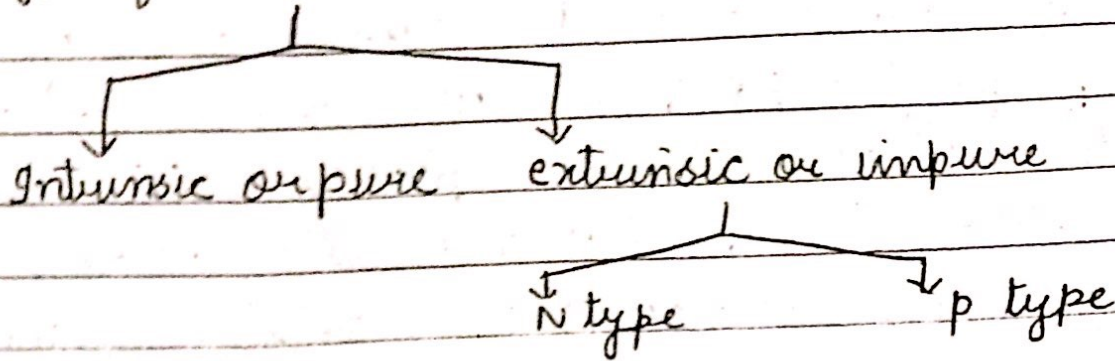 Intrinsic or pure extrinsic or impure
N type p type